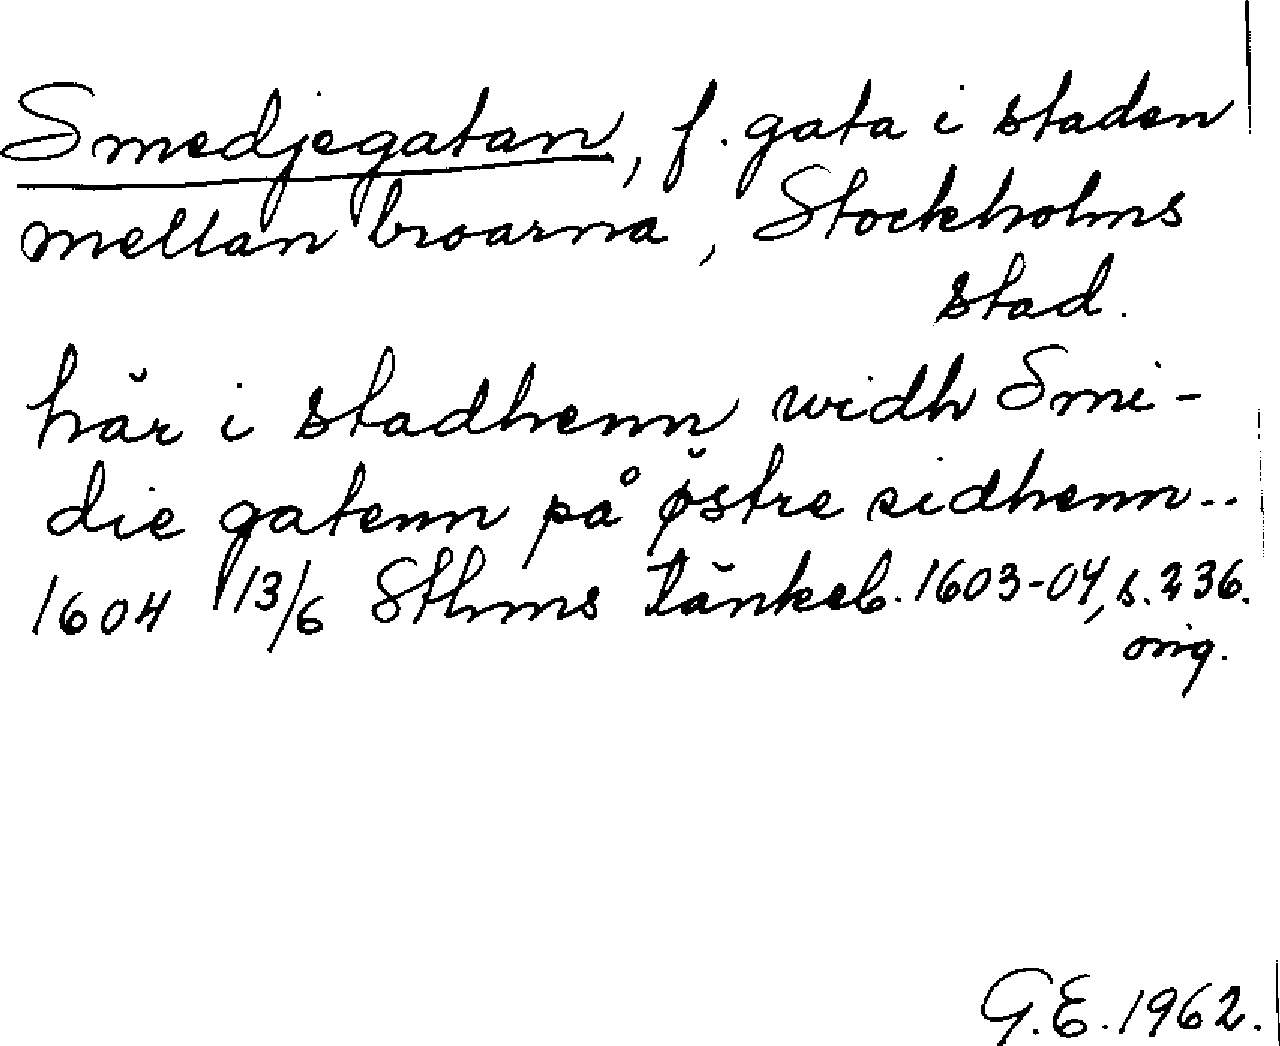 Smedjegatan, f. gata i staden
mellan broarna, Stockholms
stad.
här i stadhenn widh Smi-
die gatenn på østre sidhenn..
1604 13/6 Sthms Tänkeb. 1603-04, s. 236.
orig.
G.E. 1962.